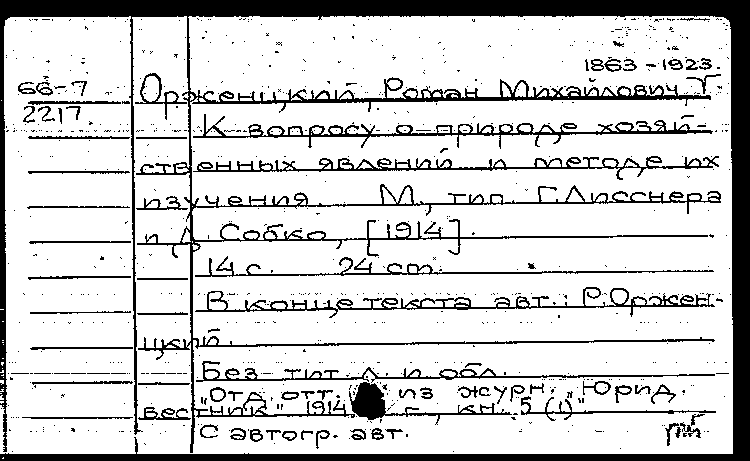 1863-1923.
66-7
2217.
Орженцкий, Роман Михайлович,
К вопросу о природе хозяй-
ственных явлений и методе их
изучения. М., тип. Г. Лисснера
и Д. Собко, [1914].
14 с. 24 cm.
В конце текста авт.: Р. Оржен-
цкий.
Без тит. л. и обл.
"Отд. отт. из журн. "Юрид.
вестник" 1914 г., кн. 5 (1)"
С автогр. авт.